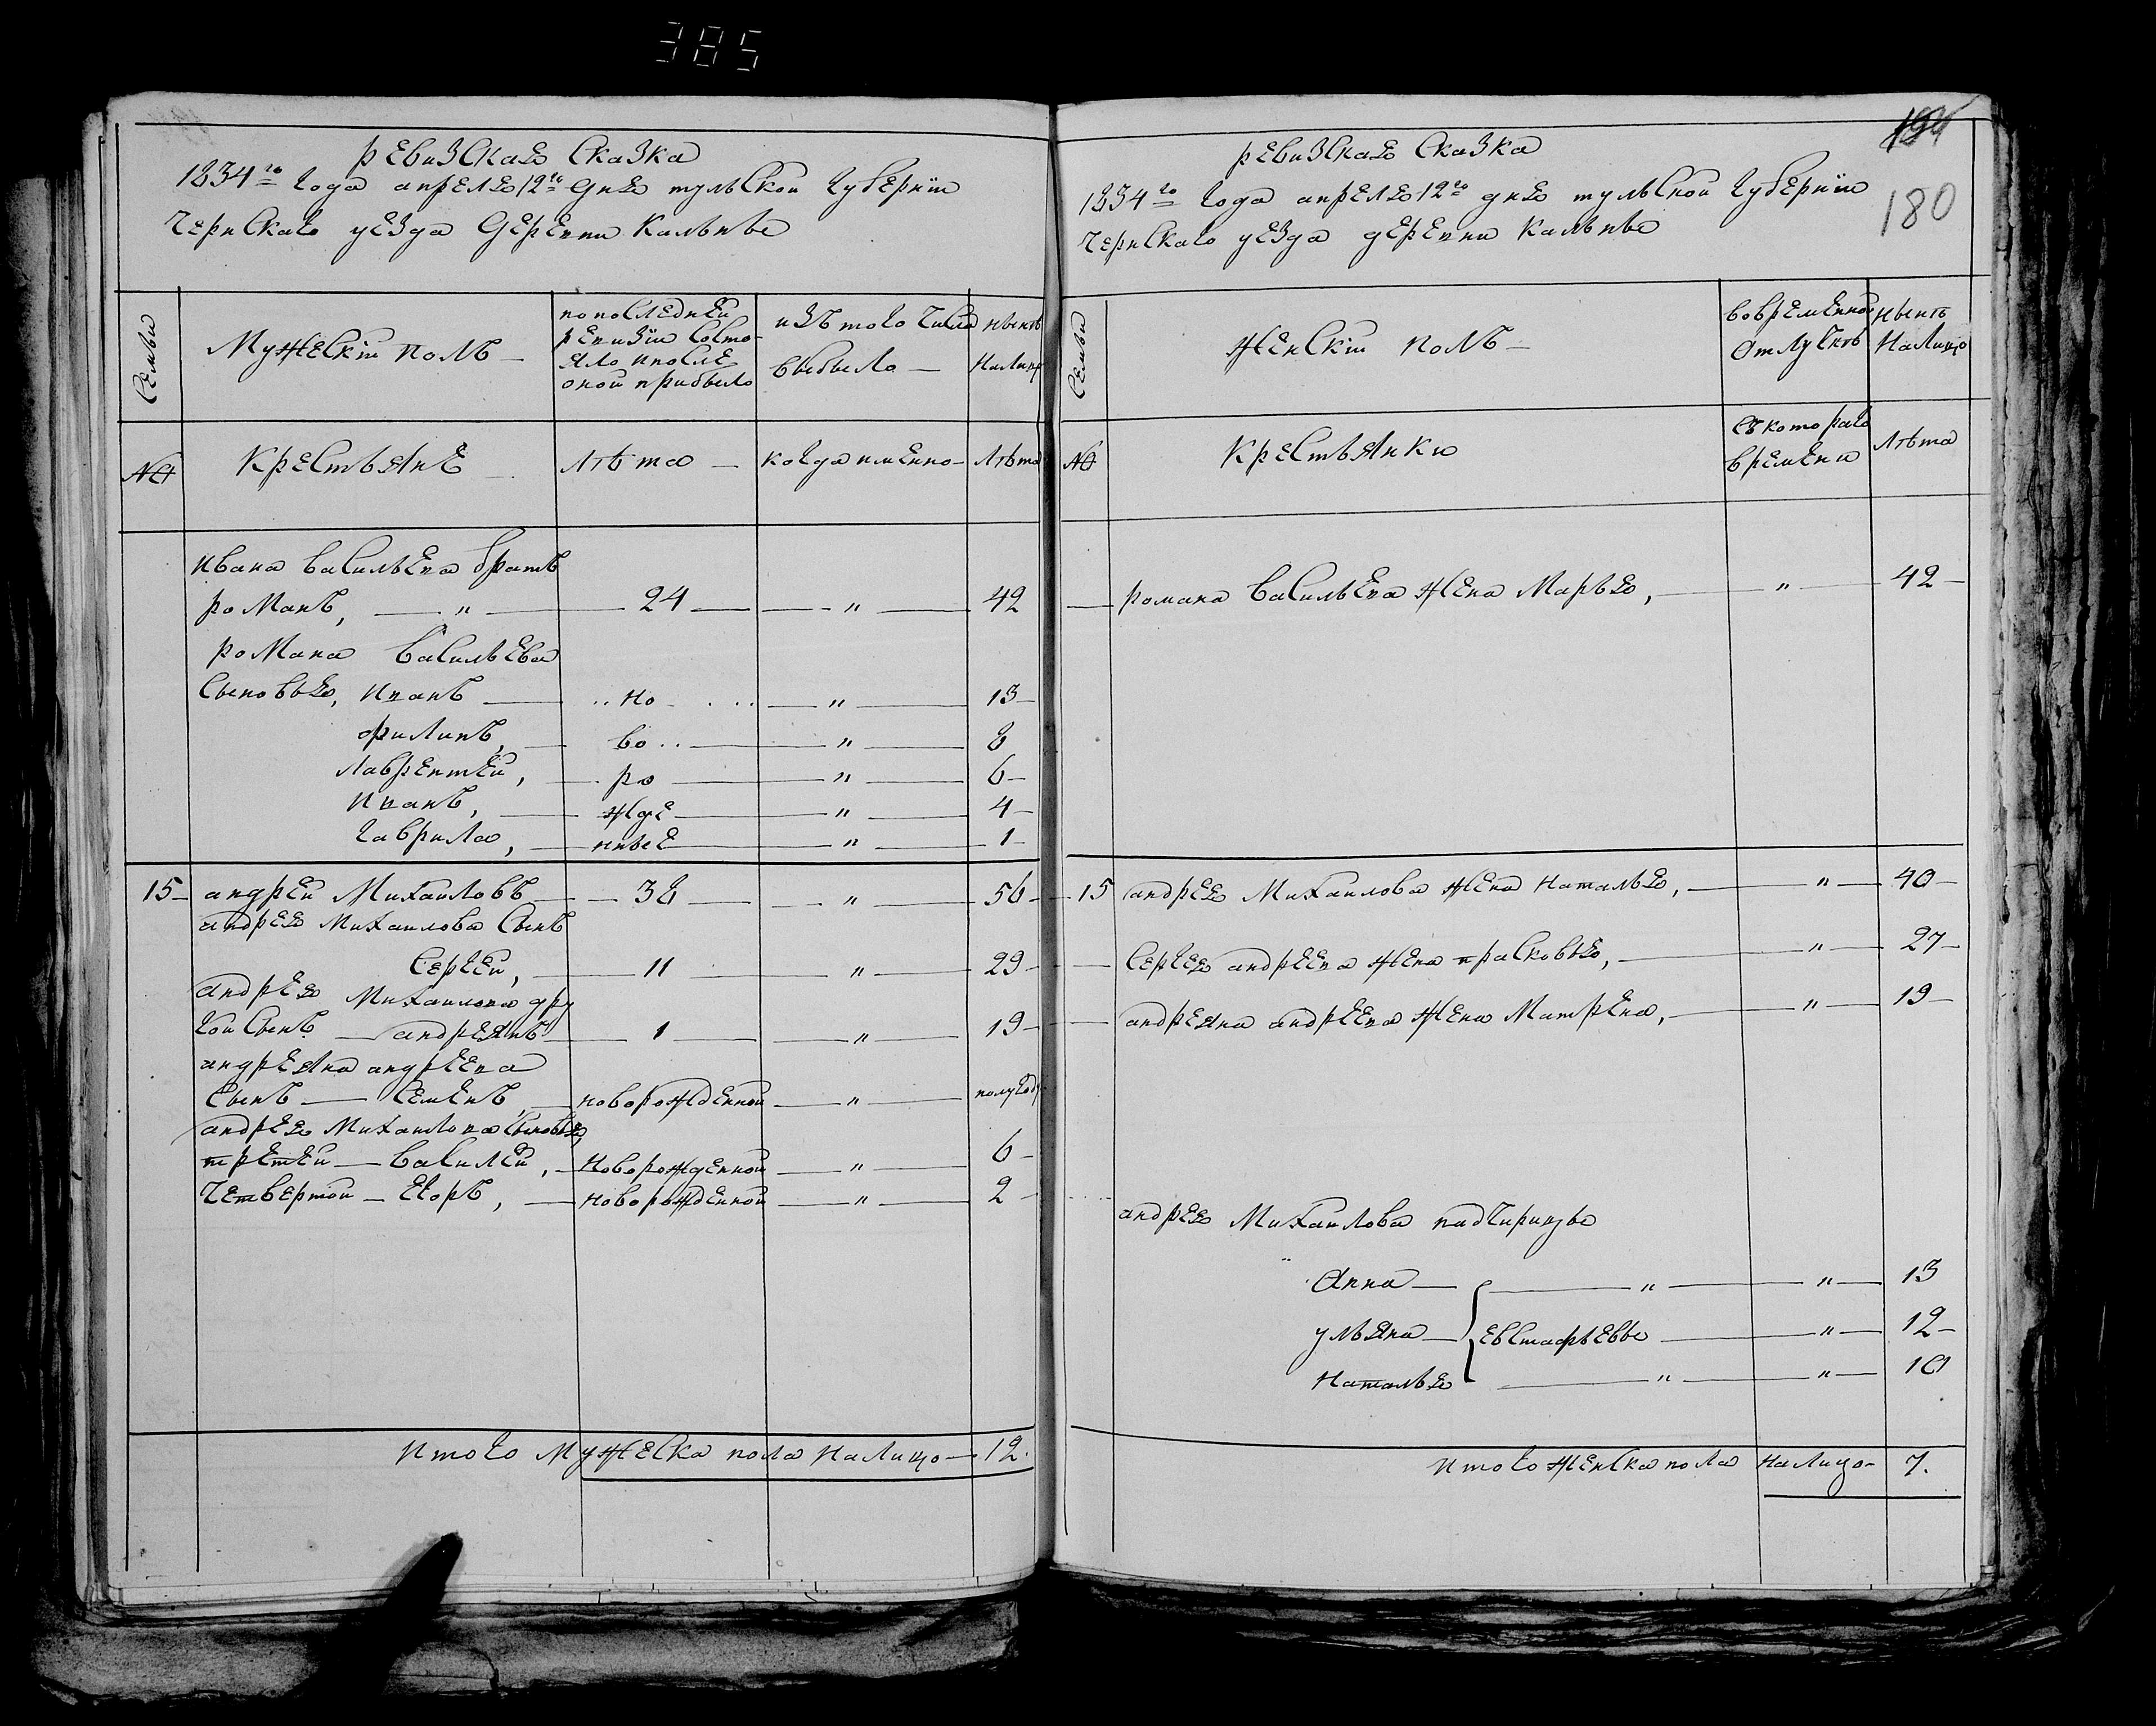 385
ревизская сказка
1834го года апреля 12го дня тульской губернии
чернскаго уезда деревни Кальны
Семьи
Мужескiй полъ
по последней
ревизiи состо-
яло и после
оной прибыло
изъ того числа
выбыло
ныне
Налицо
№
Крестьяне
лѣта
когда именно
лѣта
ивана васильева братъ
романъ, — " — 24 — " — 42
романа васильева
сыновья, иванъ — но — " — 13
филипъ, — во — " — 8
лаврентей, — ро — " — 6
иванъ, — жде — " — 4
гаврила, — ные — " — 1
15 андрей Михаиловъ — 38 — " — 56
андрея Михаилова сынъ
сергей, — 11 — " — 29
андрея Михаилова дру
гой сынъ — андреянъ — 1 — " — 19
андреяна андреева
сынъ — семенъ, — новорожденной — " — полугоду
андрея Михаилова сыновья,
третей — василей, — новорожденной — " — 6
четвертой — егоръ, — новорожденной — " — 2
итого мужеска пола налицо — 12.
180
ревизская сказка
1834го года апреля 12го дня тульской губернии
чернскаго уезда деревни Кальны
Семьи
женскiй полъ
во временной
отлучке
ныне
Налицо
№
Крестьянки
съ котораго
времени
лѣта
романа васильева жена Марья, — " — 42
15 андрея Михаилова жена наталья, — " — 40
сергея андреева жена прасковья, — " — 27
андреяна андреева жена Матрена, — " — 19
андрея Михаилова падчирицы
анна — " — " — 13
ульяна — евстафьевы — " — 12
наталья — " — " — 10
итого женска пола налицо — 7.